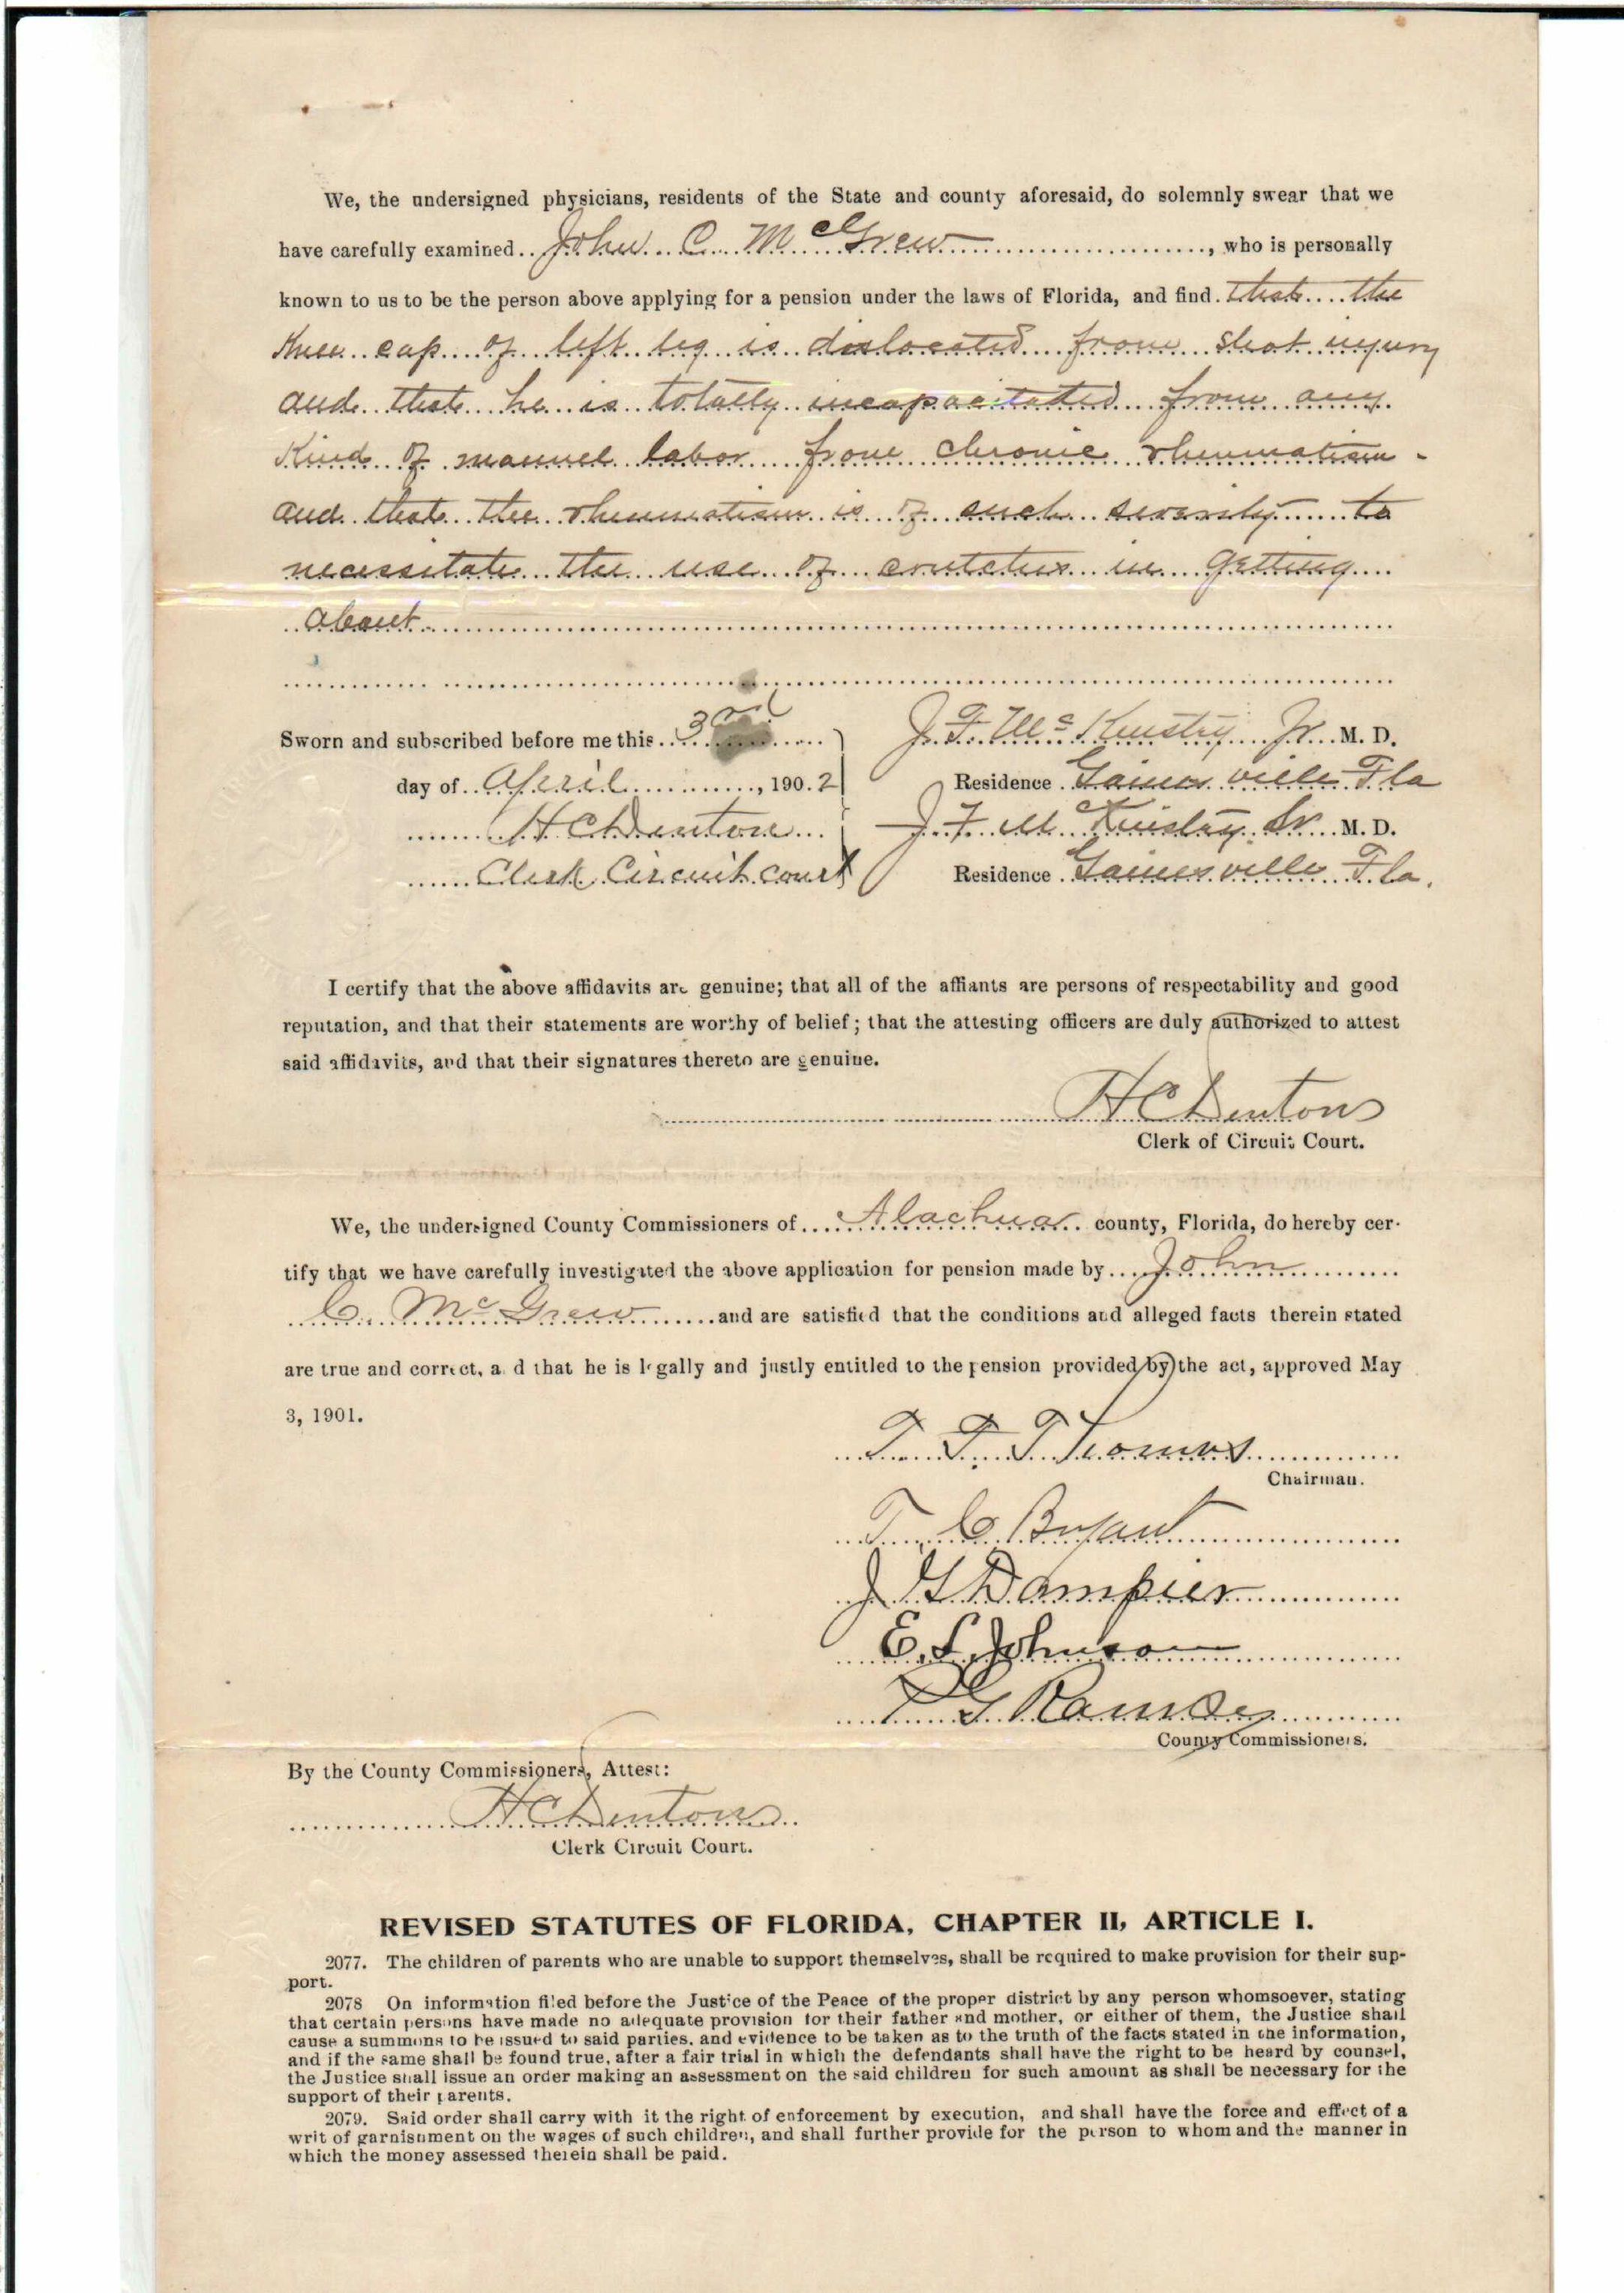 We, the undersigned physicians, residents of the State and county aforesaid, do solemnly swear that we
have carefully examined John C. McGrew, who is personally
known to us to be the person above applying for a pension under the laws of Florida, and find that the
Knee cap of left leg is dislocated from shot injury
and that he is totally incapacitated from any
Kind of manuel labor from chronic rheumatism -
and that the rheumatism is of such severity to
necessitate the use of crutches in getting
about
Sworn and subscribed before me this 3rd J. F. McKinstry Jr. M. D.
day of April, 1902 Residence Gainesville Fla
H C Denton J. F. McKinstry Sr. M. D.
Clerk Circuit court Residence Gainesville Fla.
I certify that the above affidavits are genuine; that all of the affiants are persons of respectability and good
reputation, and that their statements are worthy of belief; that the attesting officers are duly authorized to attest
said affidavits, and that their signatures thereto are genuine.
H C Denton
Clerk of Circuit Court.
We, the undersigned County Commissioners of Alachua county, Florida, do hereby cer-
tify that we have carefully investigated the above application for pension made by John
C. McGrew and are satisfied that the conditions and alleged facts therein stated
are true and correct, and that he is legally and justly entitled to the pension provided by the act, approved May
3, 1901.
T. F. Thomas
Chairman.
T. C. Bryant
J G Dampier
E. L. Johnson
G Ramsey
County Commissioners.
By the County Commissioners, Attest:
H C Denton
Clerk Circuit Court.
REVISED STATUTES OF FLORIDA, CHAPTER II, ARTICLE I.
2077. The children of parents who are unable to support themselves, shall be required to make provision for their sup-
port.
2078 On information filed before the Justice of the Peace of the proper district by any person whomsoever, stating
that certain persons have made no adequate provision for their father and mother, or either of them, the Justice shall
cause a summons to be issued to said parties, and evidence to be taken as to the truth of the facts stated in the information,
and if the same shall be found true, after a fair trial in which the defendants shall have the right to be heard by counsel,
the Justice shall issue an order making an assessment on the said children for such amount as shall be necessary for the
support of their parents.
2079. Said order shall carry with it the right of enforcement by execution, and shall have the force and effect of a
writ of garnishment on the wages of such children, and shall further provide for the person to whom and the manner in
which the money assessed therein shall be paid.